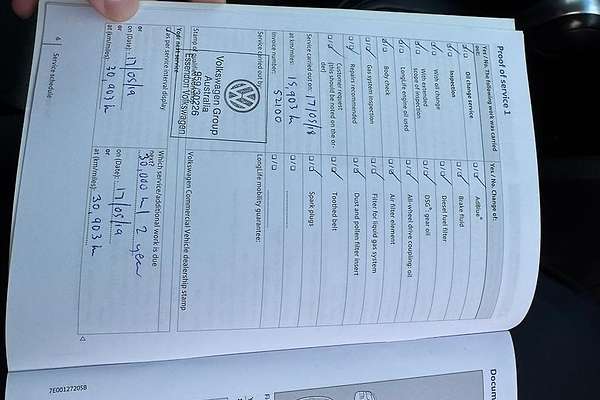 Proof of service 1
Yes / No, The following work was carried
out:
Oil change service
Inspection
With oil change
With extended
scope of inspection
LongLife engine oil used
Body check
Gas system inspection
Repairs recommended
Customer request
(this should be noted on the or-
der)
Service carried out on: 17/05/18
at km/miles: 15,903 k
Invoice number: 52100
Service carried out by:
Volkswagen Group
Australia
Essendon Volkswagen
Your next service
as per service interval display
or
on (Date): 17/05/19
or
at (km/miles): 30,903 k
4 Service schedule
Yes / No, Change of:
AdBlue®
Brake fluid
Diesel fuel filter
DSG® gear oil
All-wheel drive coupling: oil
Air filter element
Filter for liquid gas system
Dust and pollen filter insert
Toothed belt
Spark plugs
LongLife mobility guarantee:
Volkswagen Commercial Vehicle dealership stamp
Which service/additional work is due
next?
30,000 k / 2 year
on (Date): 17/05/19
or
at (km/miles): 30,903 k
7E0012720SB
Docum